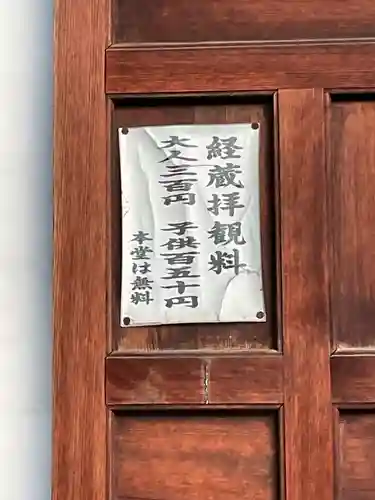 経蔵拝観料
大人三百円　子供百五十円
本堂は無料